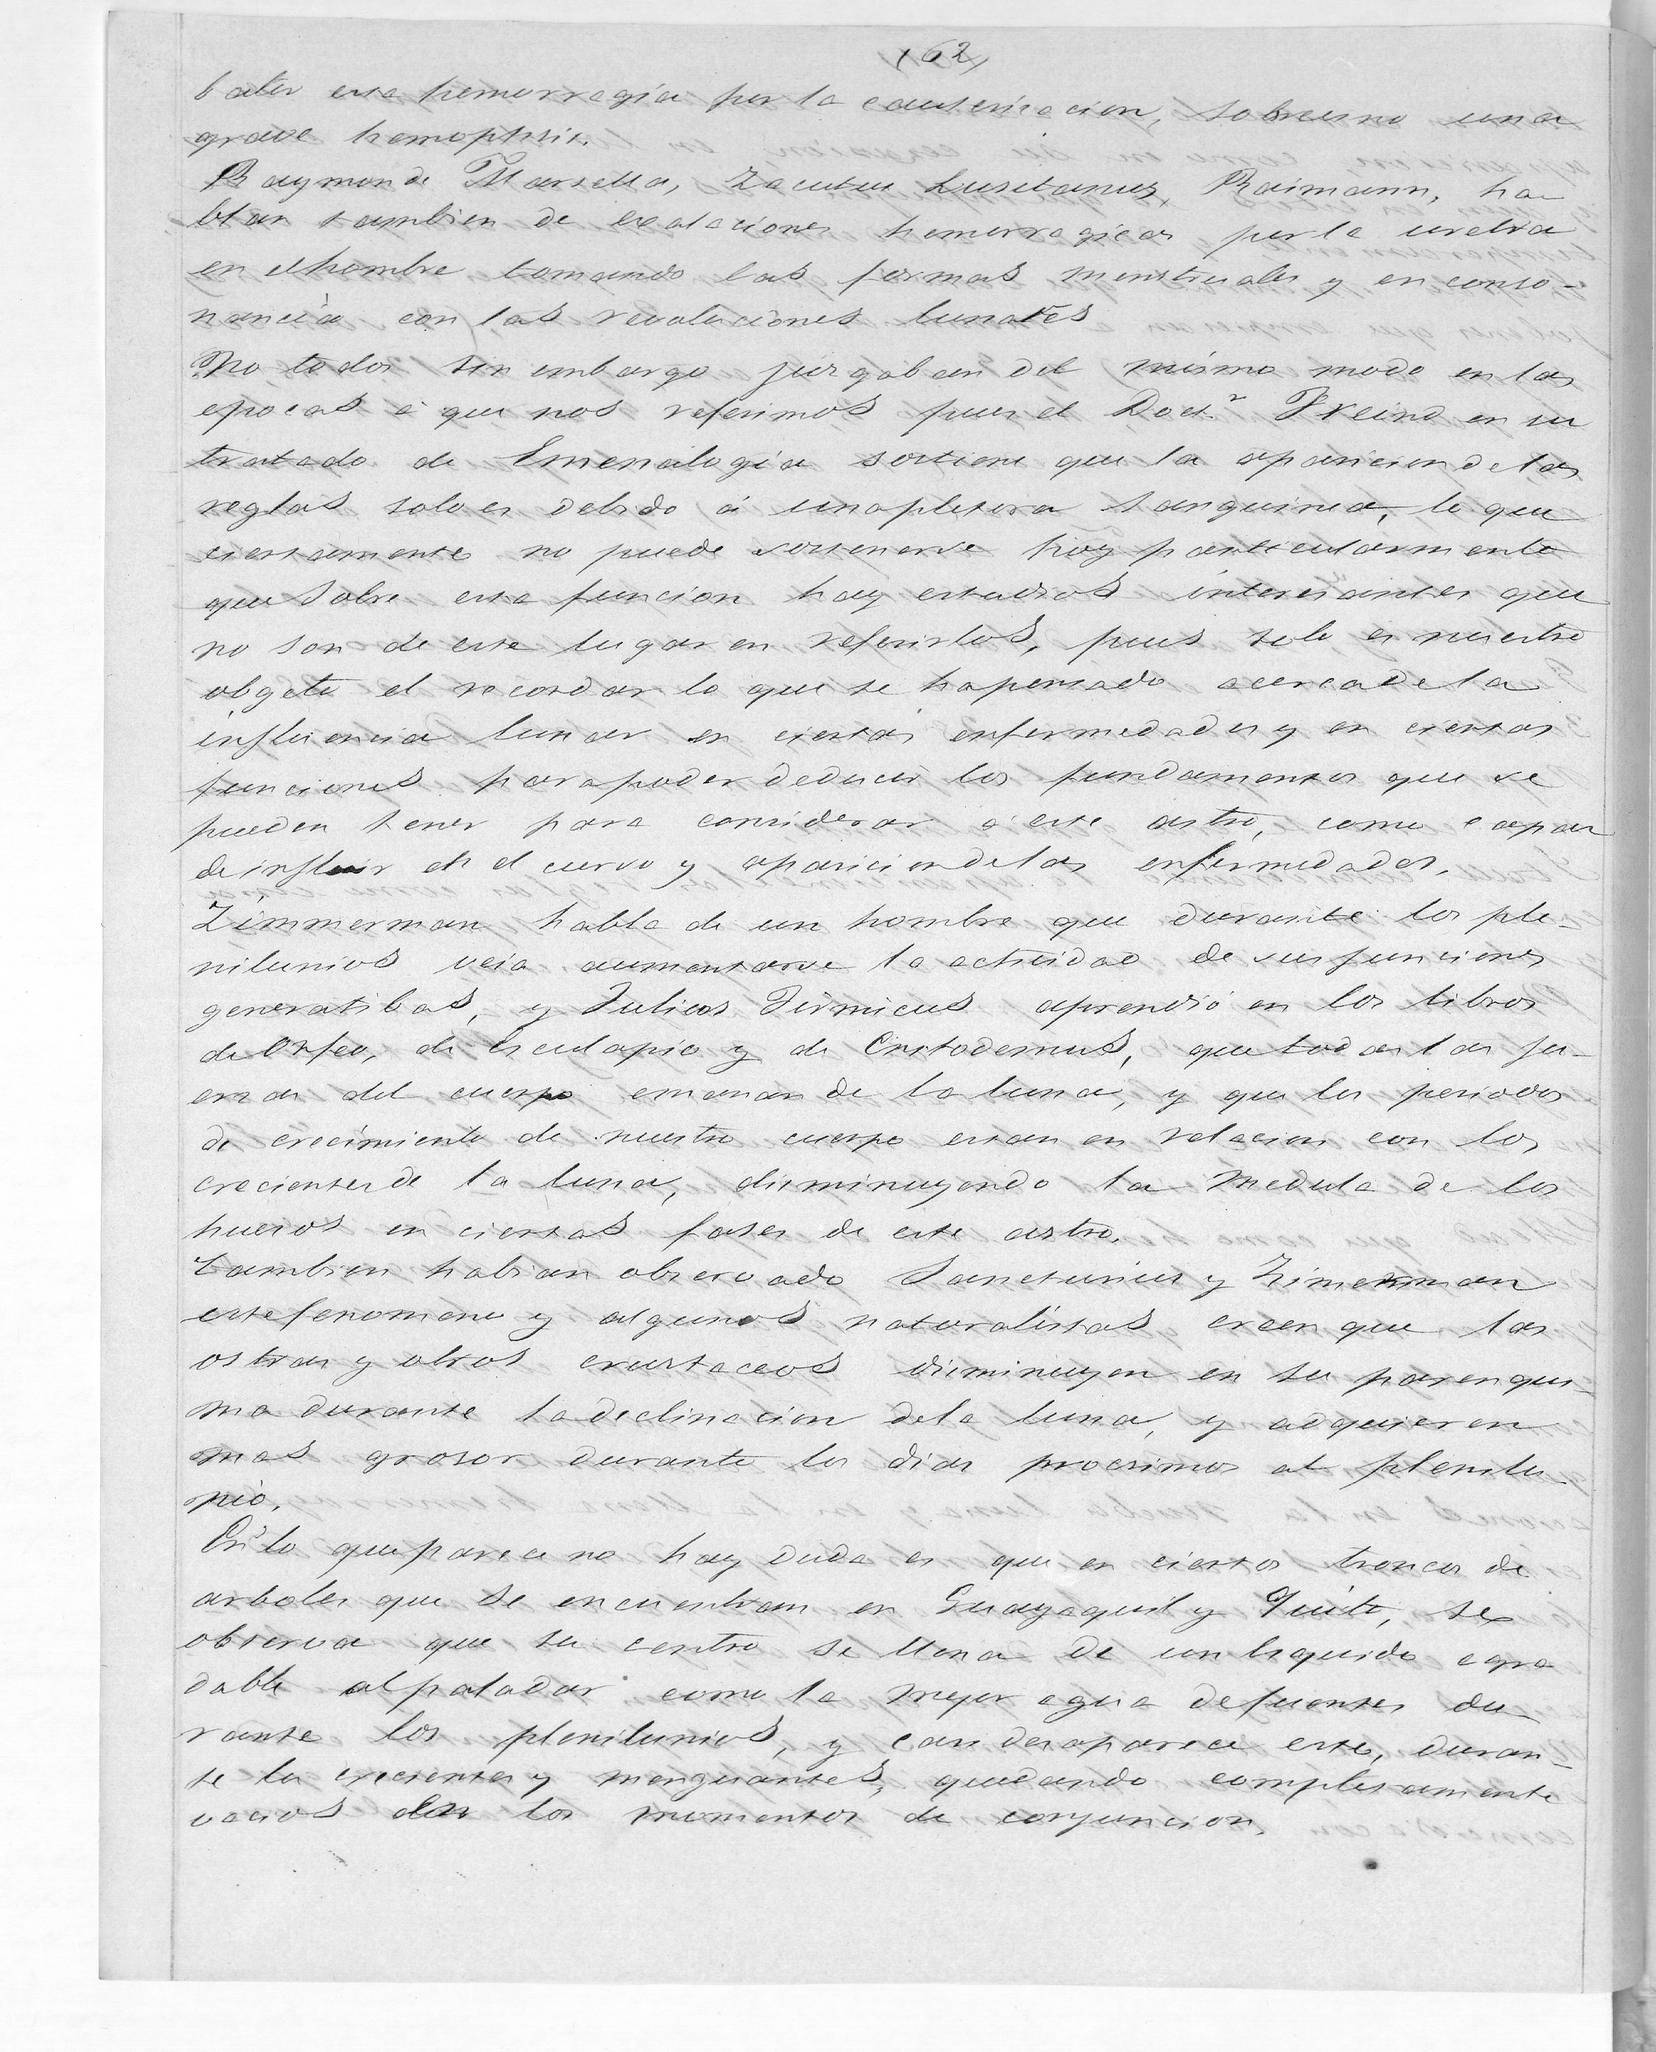 (62)
batir esta hemorragia por la cauterizacion, sobrevino una
grave hemoptisis.
Raymon de Marsella, Zacutus Lusitanus, Raimann, ha-
blan tambien de exalaciones hemorragicas por la uretra
en el hombre tomando las formas menstruales y en conso-
nancia con las revoluciones lunares
No todos sin embargo juzgaban del mismo modo en las
epocas á que nos referimos pues el Doct.r Freind en su
tratado de Emenalogia sostiene que la aparicion de las
reglas solo es debido á una pletora sanguinea, lo que
ciertamente no puede sostenerse hoy particularmente
que sobre esta funcion hay estudios interesantes que
no son de este lugar en referirlos, pues solo es nuestro
obgeto el recordar lo que se ha pensado acerca de la
influencia lunar en ciertas enfermedades y en ciertas
funciones para poder deducir los fundamentos que se
pueden tener para considerar á este astro, como capaz
de influir en el curso y aparicion de las enfermedades.
Zimmerman habla de un hombre que durante los ple-
nilunios veia aumentarse la actividad de sus funciones
generatibas, y Julius Firmicus aprendió en los libros
de Orfeo, de Esculapio y de Cristodemus, que todas las fu-
erzas del cuerpo emanan de la luna, y que los periodos
de crecimiento de nuestro cuerpo estan en relacion con los
crecientes de la luna, disminuyendo la medula de los
huesos en ciertas fases de este astro.
Tambien habian observado Sanctorius y Zimerman
este fenomeno y algunos naturalistas creen que las
ostras y otros crustaceos disminuyen en su parenqui-
ma durante la declinacion de la luna, y adquieren
mas grosor durante los dias procsimos al plenilu-
nio.
En lo que parece no hay duda es que en ciertos troncos de
arboles que se encuentran en Guayaquil y Quito, se
observa que su centro se llena de un liquido agra-
dable al paladar como la mejor agua de fuentes du-
rante los plenilunios, y casi desaparece este, duran-
te los crecientes y menguantes, quedando completamente
vacios en los momentos de conjuncion.